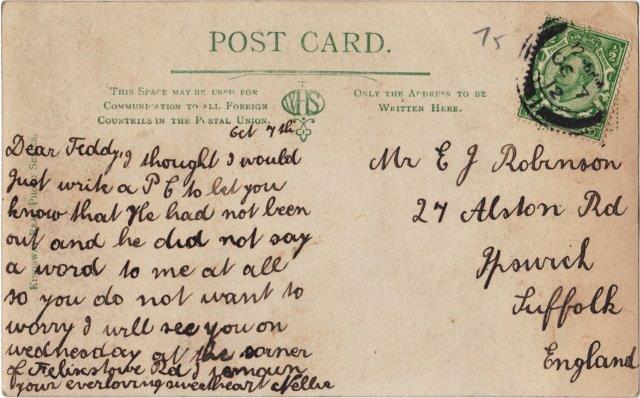 POST CARD.
75
THIS SPACE MAY BE USED FOR
COMMUNICATION TO ALL FOREIGN
COUNTRIES IN THE POSTAL UNION.
WHS
ONLY THE ADDRESS TO BE
WRITTEN HERE.
Oct 7th
Dear Teddy, I thought I would
Just write a P C to let you
know that He had not been
out and he did not say
a word to me at all
so you do not want to
worry I will see you on
wednesday at the corner
of Felixstowe Rd I remain
your everloving sweetheart Nellie
Mr E J Robinson
27 Alston Rd
Ipswich
Suffolk
England